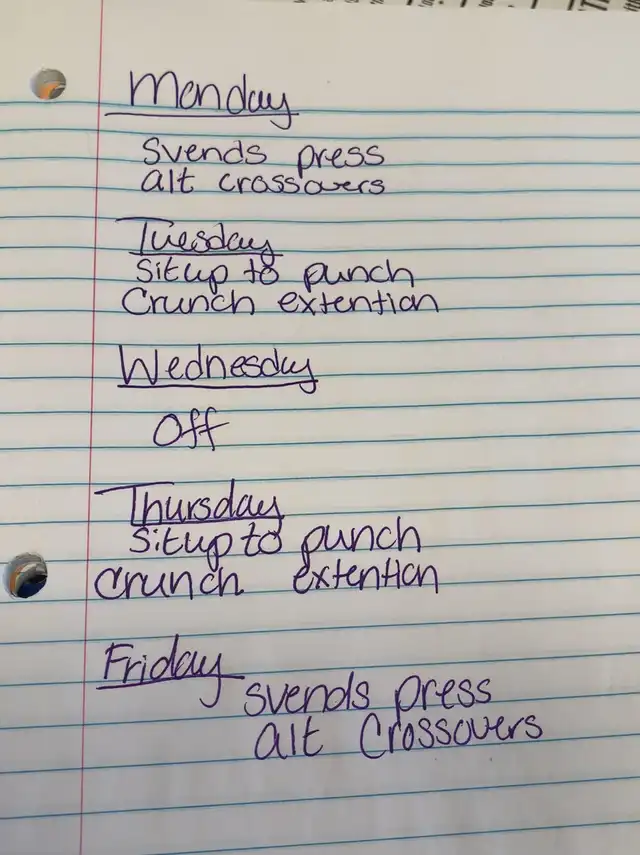 Monday
Svends press
alt crossovers
Tuesday
Situp to punch
Crunch extention
Wednesday
Off
Thursday
Situp to punch
Crunch extention
Friday
svends press
alt Crossovers